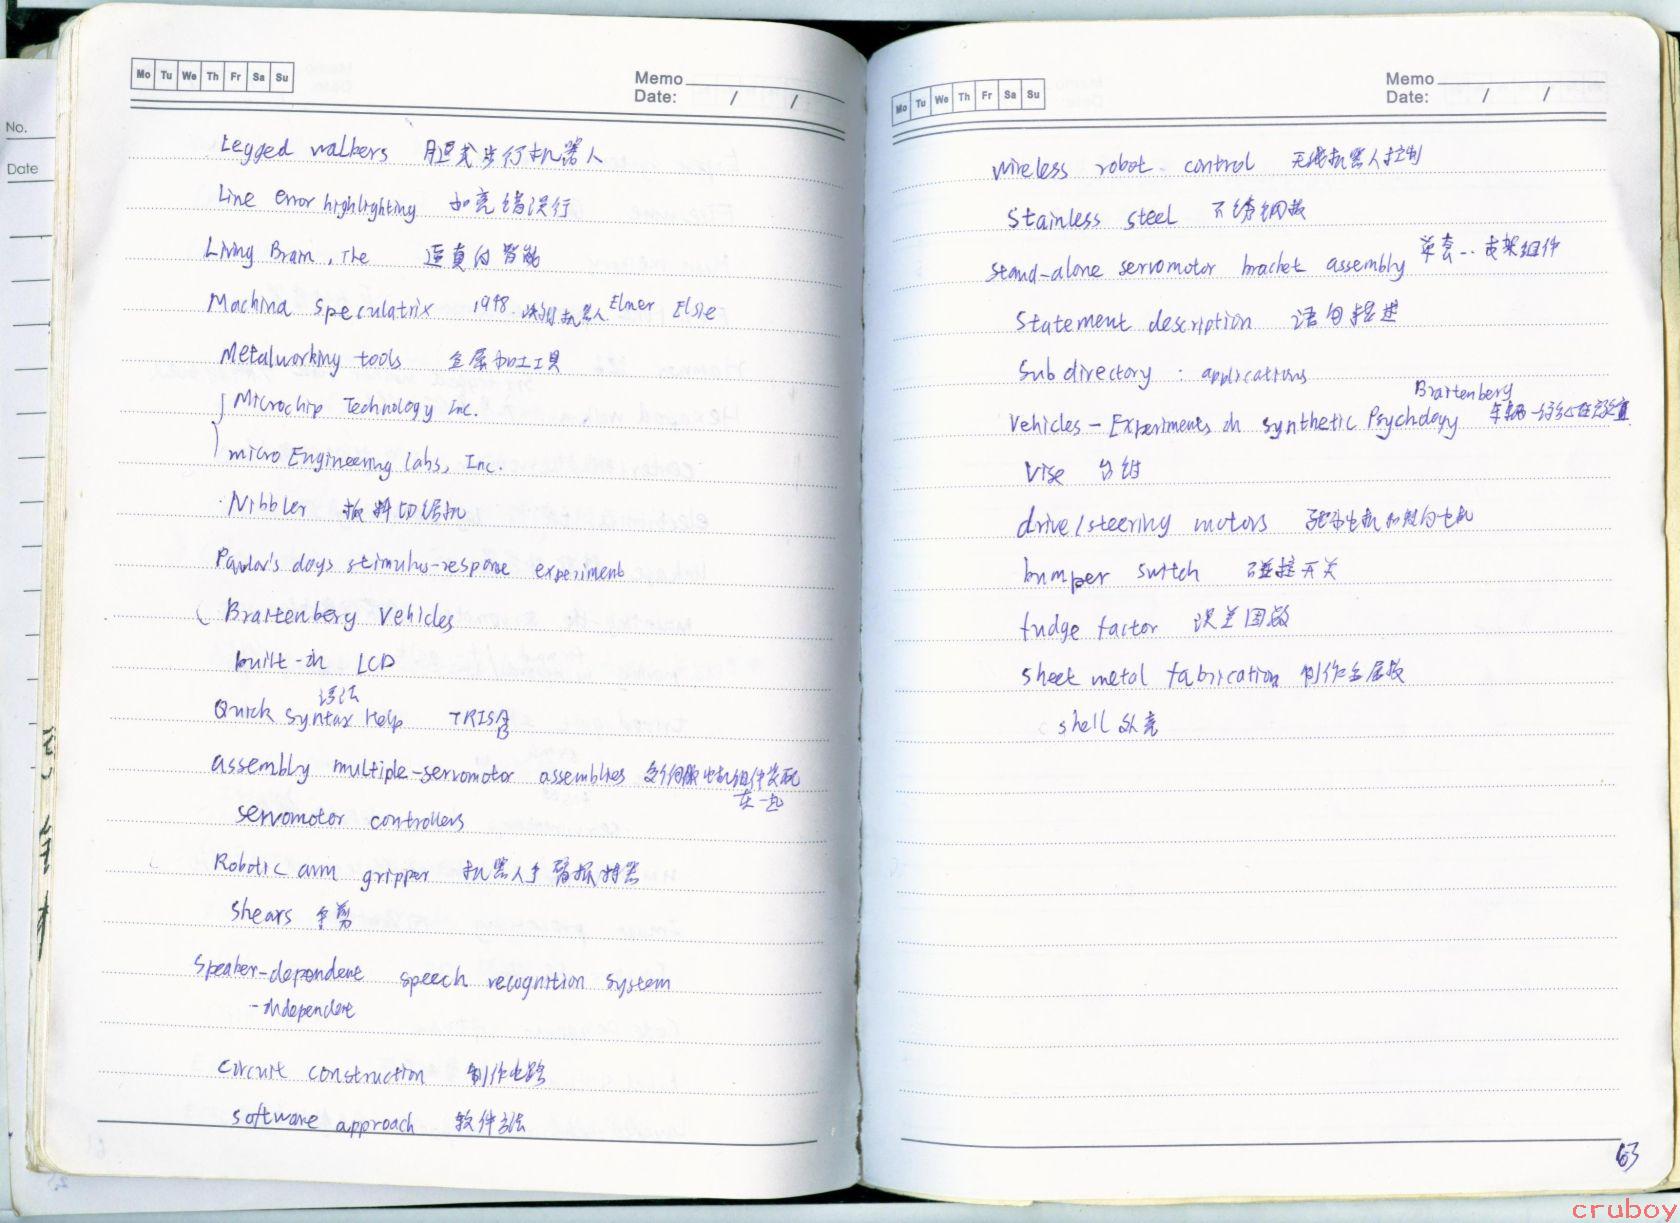 No.
Date
Mo Tu We Th Fr Sa Su
Memo
Date: / /
Legged walkers 腿式步行机器人
Line error highlighting 加亮错误行
Living Brain, The 逼真的智能
Machina speculatrix 1948 机器人 Elmer Elsie
Metalworking tools 金属加工工具
Microchip Technology Inc.
micro Engineering Labs, Inc.
Nibbler 板料切锯机
Pavlov's dogs stimulus-response experiment
Braitenberg Vehicles
built-in LCD
语法
Quick Syntax Help TRIS
assembly multiple-servomotor assemblies 多个伺服电机组件装配
在一起
servomotor controllers
Robotic arm gripper 机器人手臂抓持器
Shears 手剪
Speaker-dependent speech recognition system
-independent
Circuit construction 制作电路
software approach 软件方法
Mo Tu We Th Fr Sa Su
Memo
Date: / /
wireless robot control 无线机器人控制
Stainless steel 不锈钢板
stand-alone servomotor bracket assembly 单套…支架组件
Statement description 语句描述
Subdirectory : applications
Braitenberg
Vehicles - Experiments in synthetic Psychology 车辆
Vise 台钳
drive/steering motors 驱动电机和转向电机
bumper switch 碰撞开关
fudge factor 误差因数
sheet metal fabrication 制作金属板
shell 外壳
63
cruboy